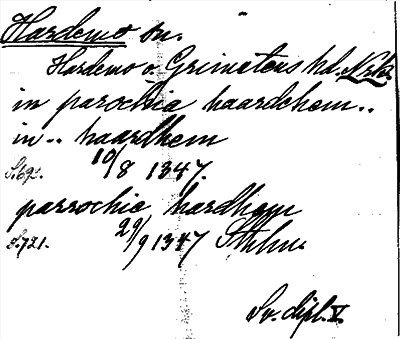 Hardemo sn.
Hardemo o. Grimstens hd. Nrke
in parochia haardehem..
in.. haardhem
10/8 1347.
S. 692.
parrochie hardhem
29/9 1347 Sthlm.
S. 721.
Sv. dipl. V.